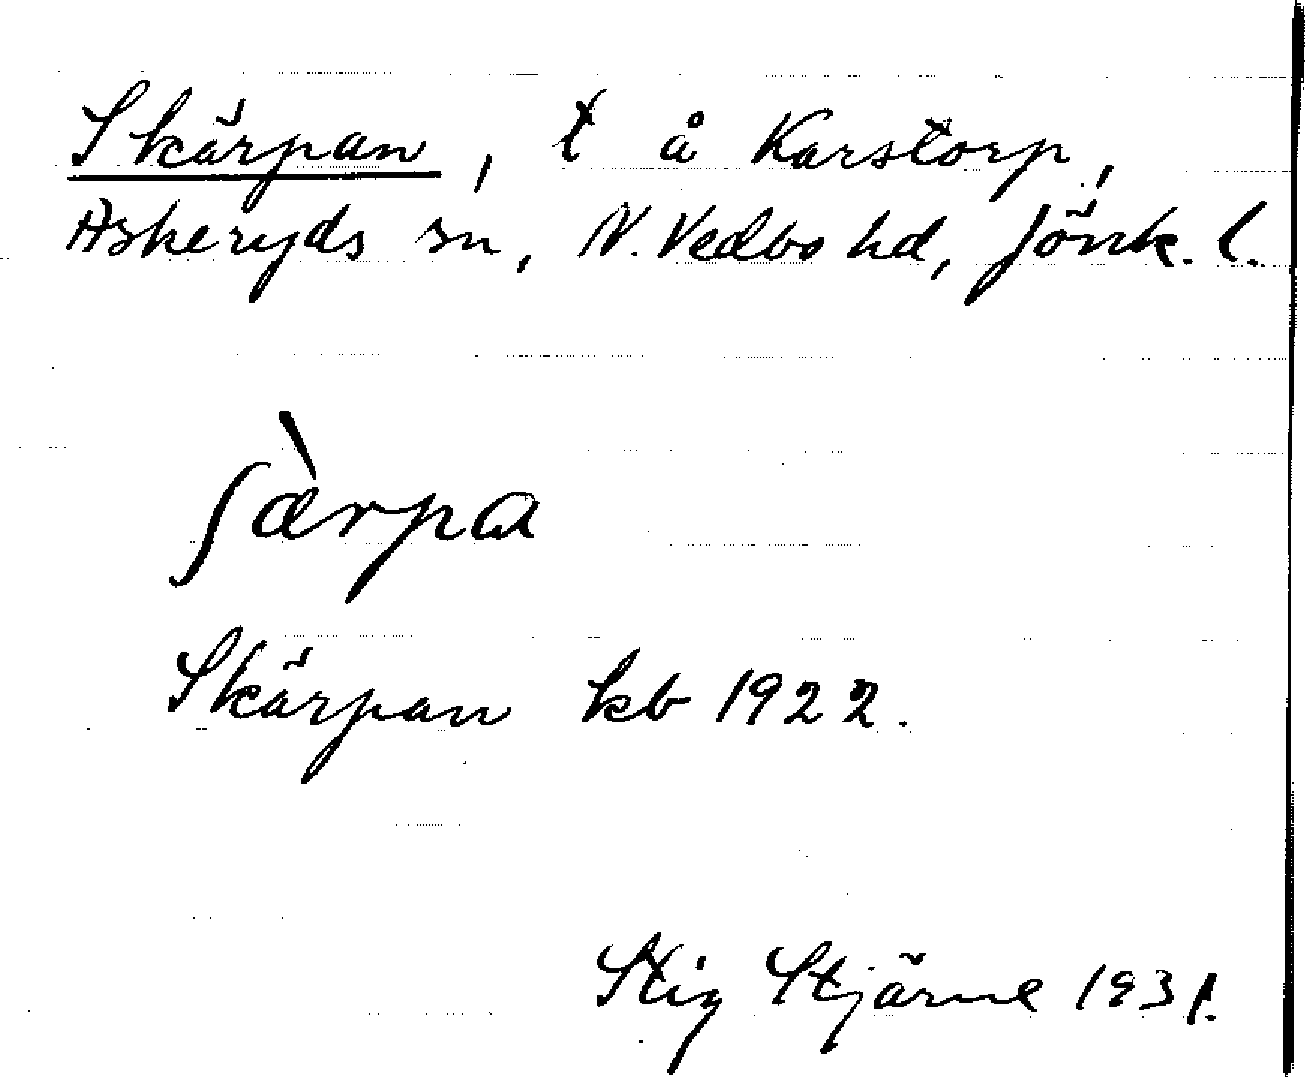 Skärpan, t å Karstorp,
Askeryds sn, N. Vedbo hd, Jönk. l.
ʃæ̀rpa
Skärpan kb 1922.
Stig Stjärne 1931.